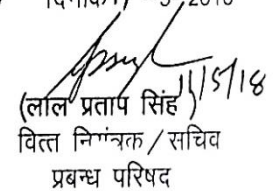 2018
11/5/18
(लाल प्रताप सिंह)
वित्त नियंत्रक / सचिव
प्रबन्ध परिषद